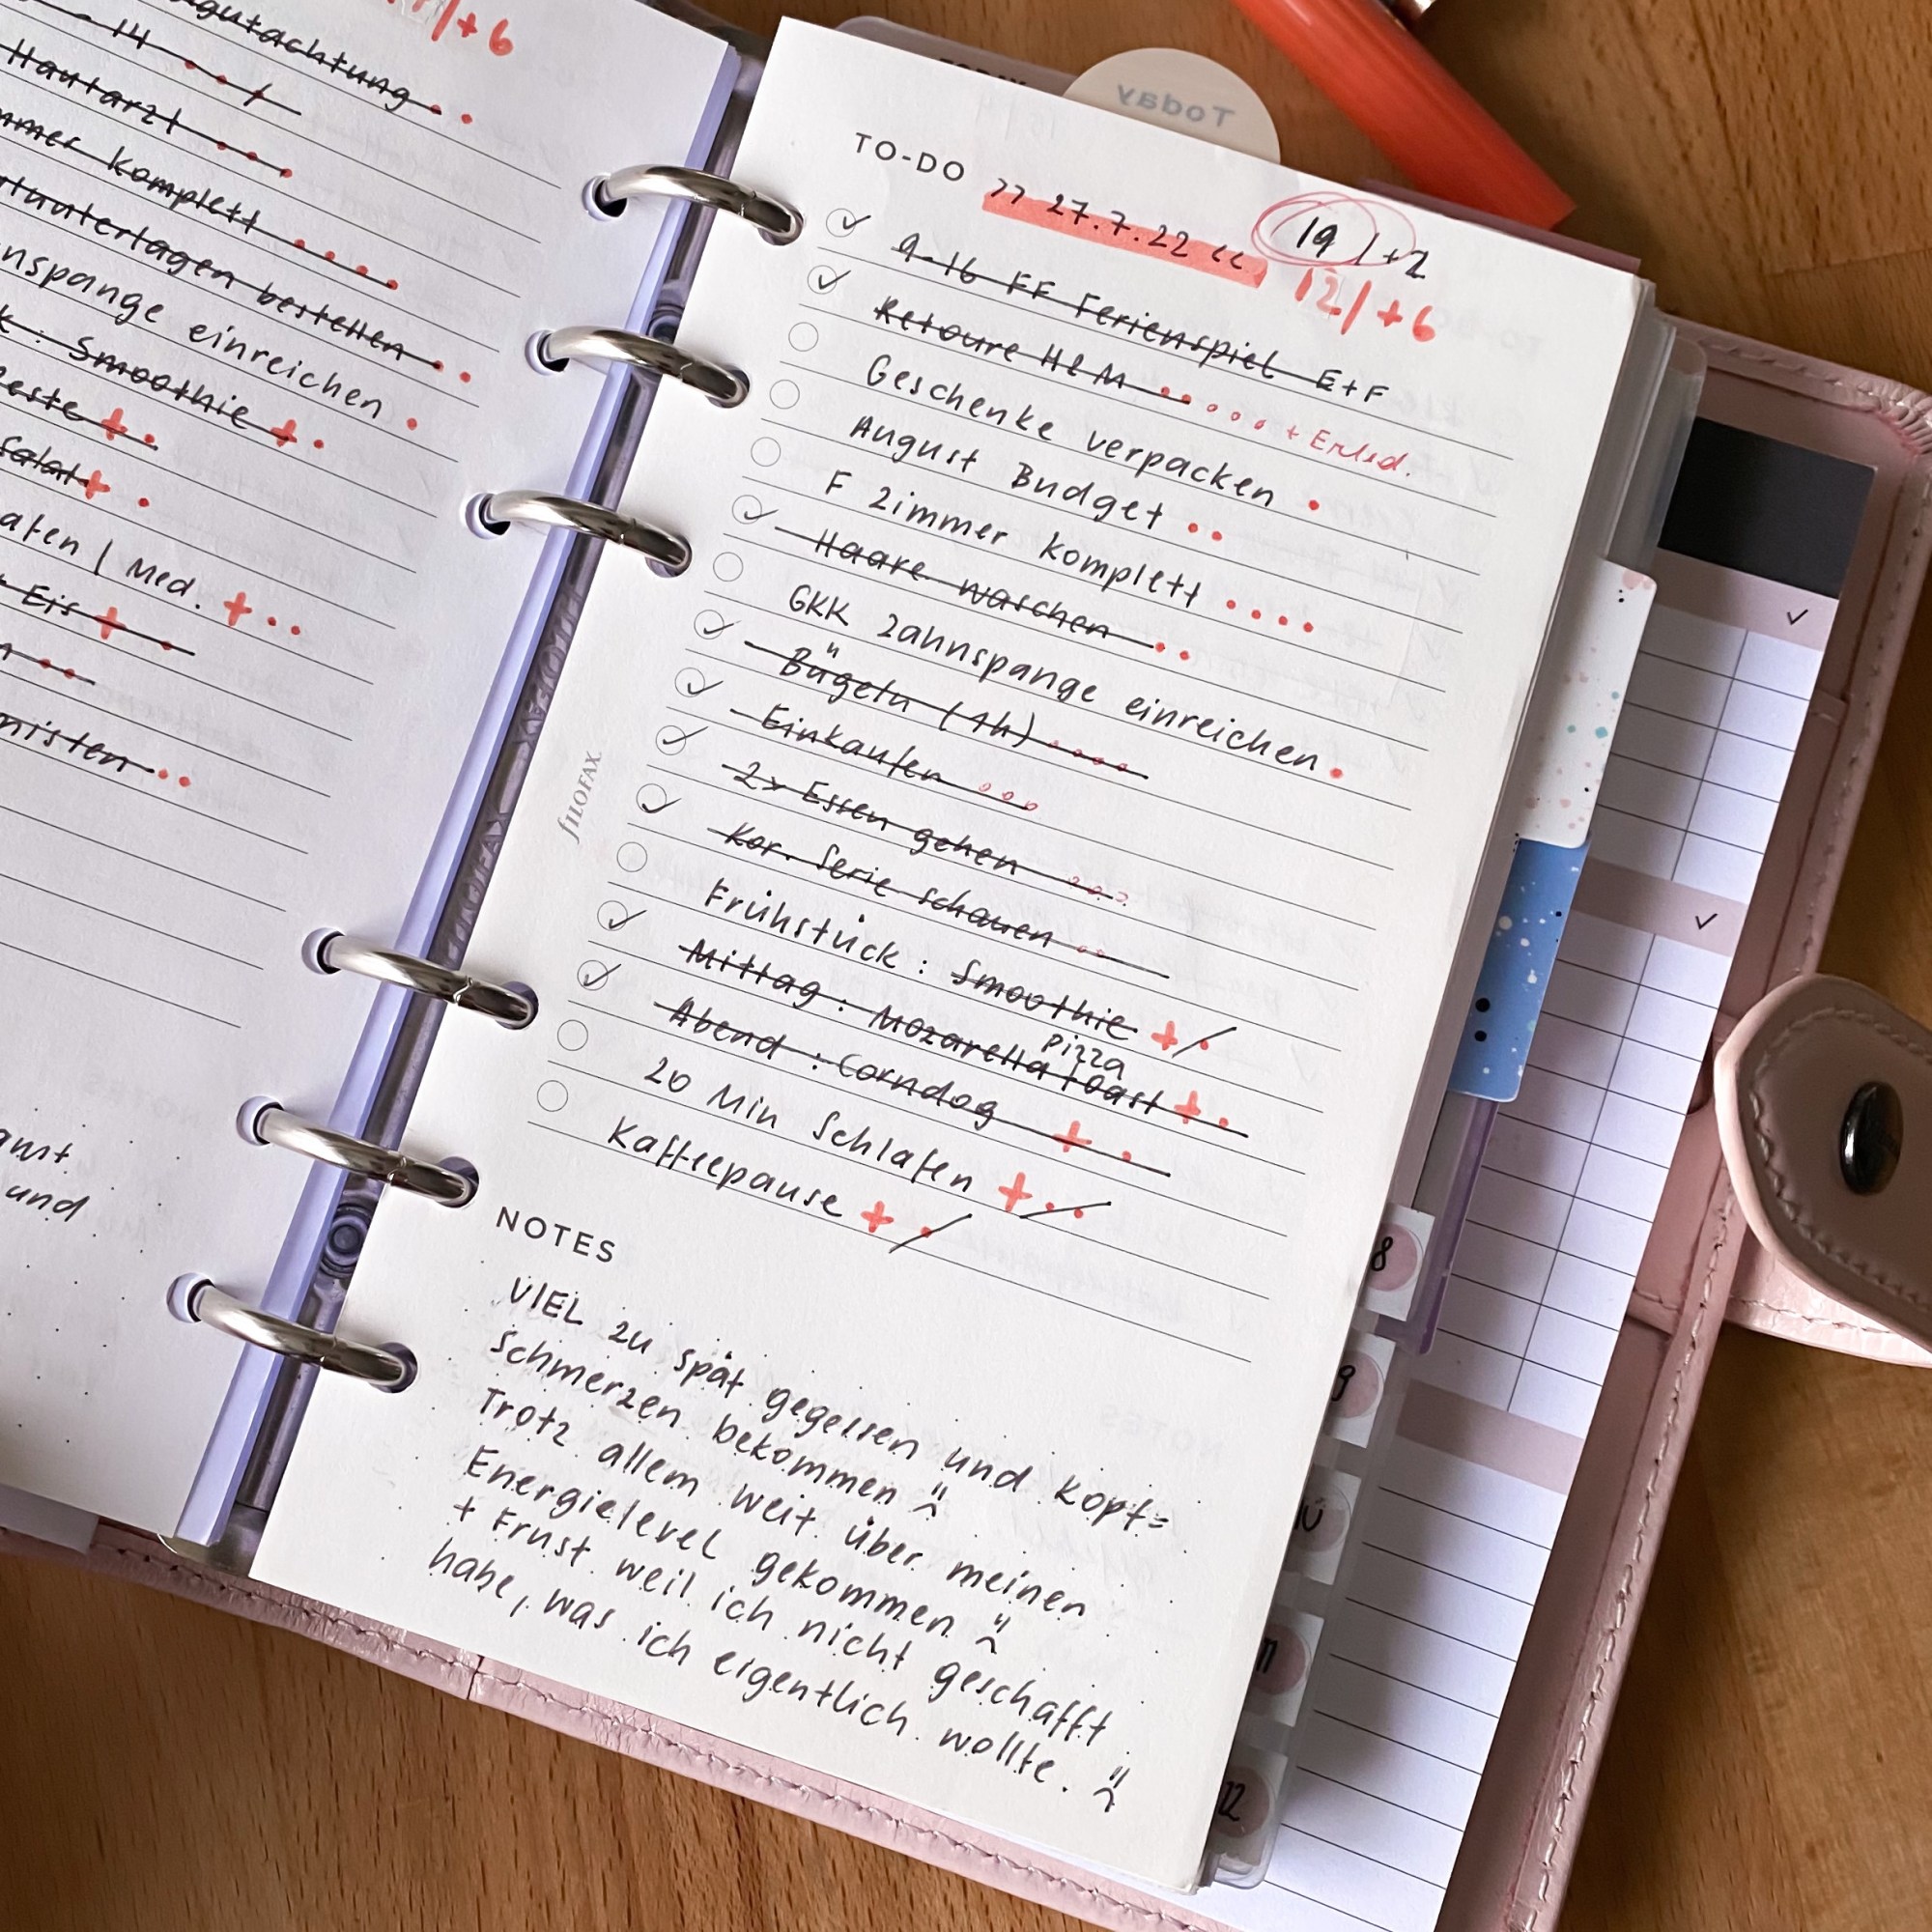 /+6
gutachtung
- 14
Hautarzt
komplett
unterlagen bestellen
nspange einreichen
k: Smoothie +
este +
Salat +
aten / Med. +
Eis +
misten
amt
und
Today
TO-DO >> 27.7.22 << 19 / +2
12 / +6
9-16 FF Ferienspiel E+F
Retoure H&M + Erled.
Geschenke verpacken
August Budget
F Zimmer komplett
Haare waschen
GKK Zahnspange einreichen
Bügeln (1h)
Einkaufen
2x Essen gehen
Kor. Serie schauen
Frühstück: Smoothie +
Mittag: Mozarella Toast Pizza +
Abend: Corndog +
20 Min Schlafen +
Kaffeepause +
filofax
NOTES
VIEL zu spät gegessen und Kopf=
Schmerzen bekommen
Trotz allem weit über meinen
Energielevel gekommen
+ Frust weil ich nicht geschafft
habe, was ich eigentlich wollte.
8
9
10
11
12